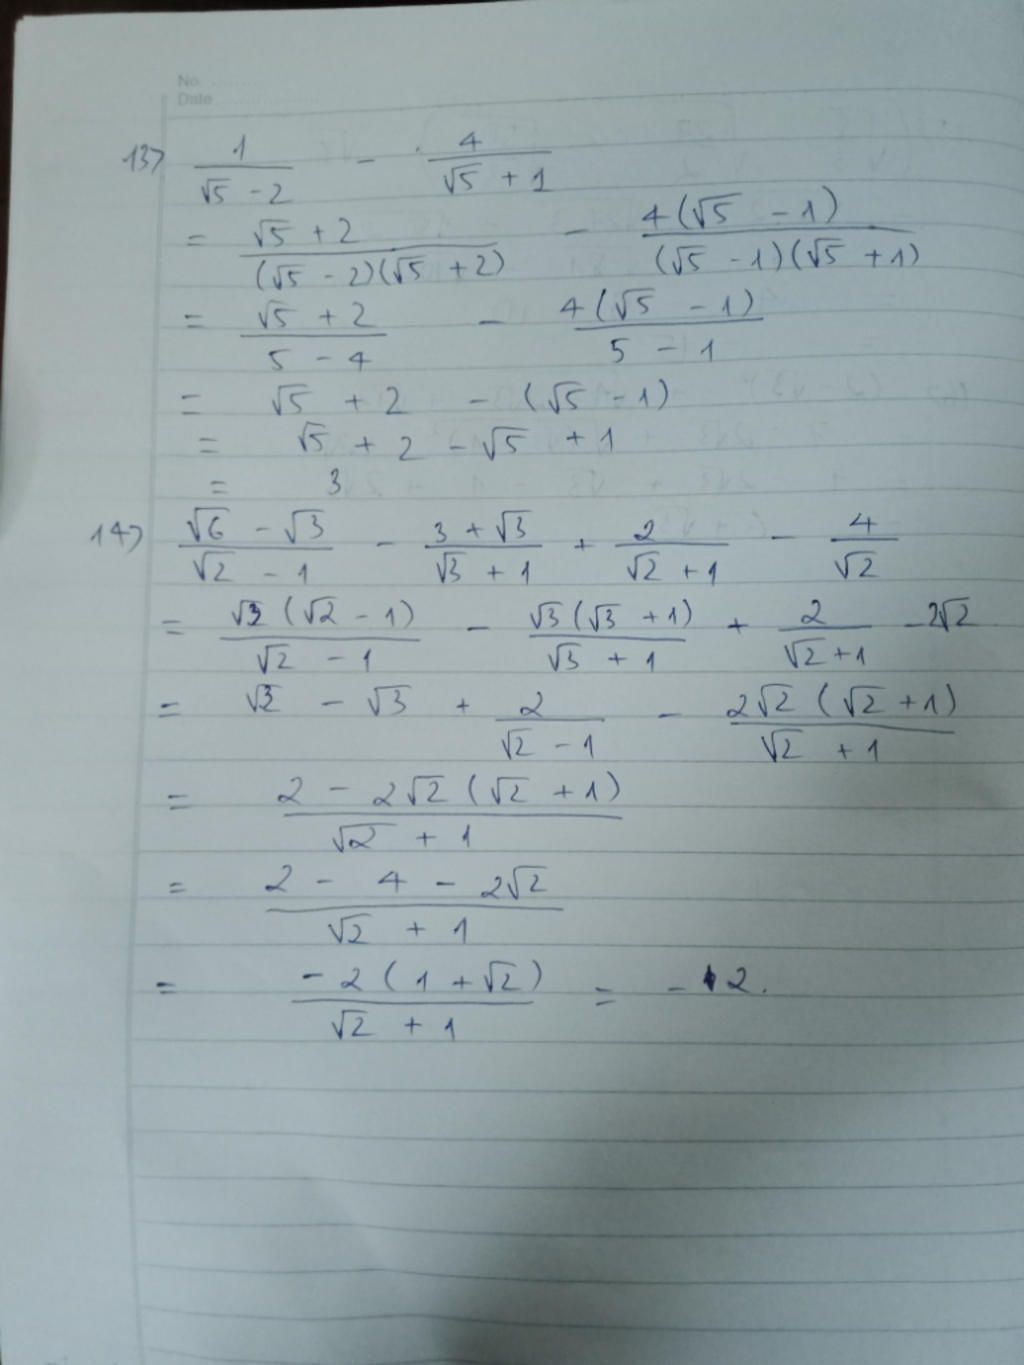 No. ............
Date ....................
13) 1/(√5 - 2) - 4/(√5 + 1)
= (√5 + 2)/((√5 - 2)(√5 + 2)) - 4(√5 - 1)/((√5 - 1)(√5 + 1))
= (√5 + 2)/(5 - 4) - 4(√5 - 1)/(5 - 1)
= √5 + 2 - (√5 - 1)
= √5 + 2 - √5 + 1
= 3
14) (√6 - √3)/(√2 - 1) - (3 + √3)/(√3 + 1) + 2/(√2 + 1) - 4/√2
= √3(√2 - 1)/(√2 - 1) - √3(√3 + 1)/(√3 + 1) + 2/(√2 + 1) - 2√2
= √3 - √3 + 2/(√2 - 1) - 2√2(√2 + 1)/(√2 + 1)
= (2 - 2√2(√2 + 1))/(√2 + 1)
= (2 - 4 - 2√2)/(√2 + 1)
= -2(1 + √2)/(√2 + 1) = -2.